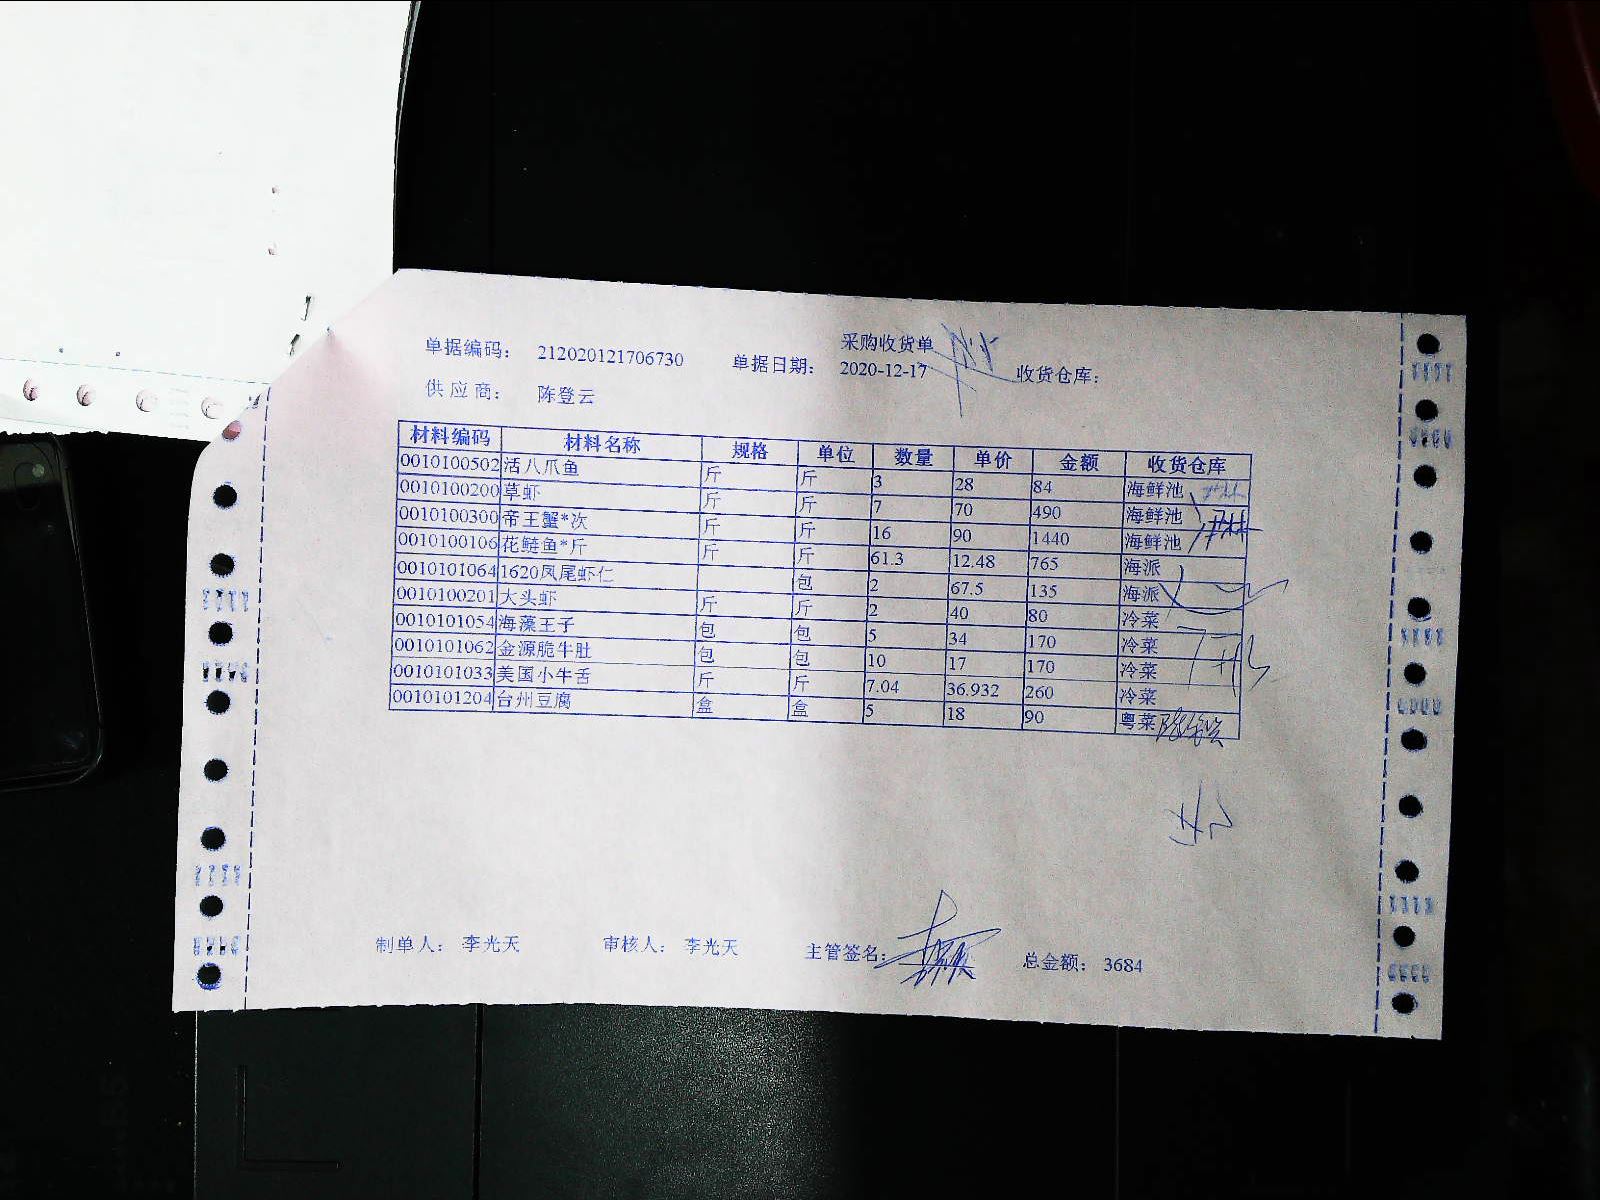 采购收货单
单据编码： 212020121706730 单据日期： 2020-12-17 收货仓库：
供应商： 陈登云
材料编码 材料名称 规格 单位 数量 单价 金额 收货仓库
0010100502 活八爪鱼 斤 斤 3 28 84 海鲜池
0010100200 草虾 斤 斤 7 70 490 海鲜池
0010100300 帝王蟹*次 斤 斤 16 90 1440 海鲜池
0010100106 花鲢鱼*斤 斤 斤 61.3 12.48 765 海派
0010101064 1620凤尾虾仁 包 2 67.5 135 海派
0010100201 大头虾 斤 斤 2 40 80 冷菜
0010101054 海藻王子 包 包 5 34 170 冷菜
0010101062 金源脆牛肚 包 包 10 17 170 冷菜
0010101033 美国小牛舌 斤 斤 7.04 36.932 260 冷菜
0010101204 台州豆腐 盒 盒 5 18 90 粤菜
制单人： 李光天 审核人： 李光天 主管签名： 总金额： 3684